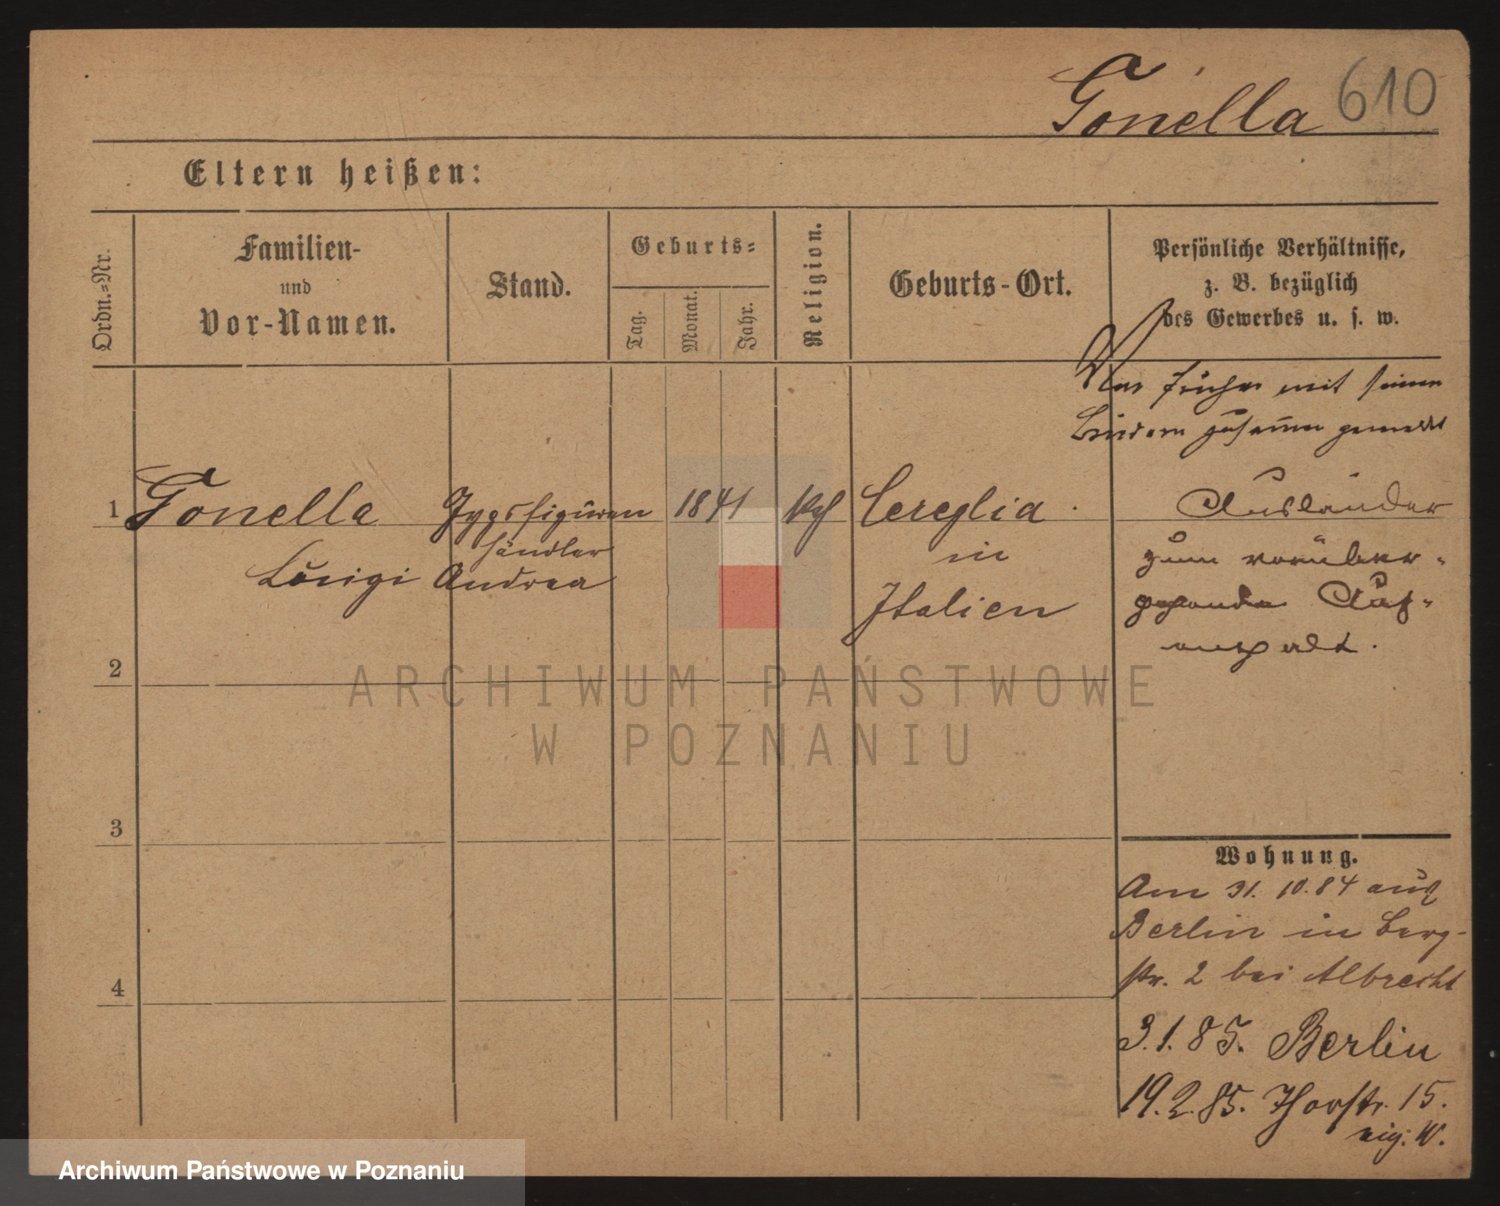 Gonella 610
Eltern heißen:
Ordn.-Nr.
Familien-
und
Vor-Namen.
Stand.
Geburts-
Tag.
Monat.
Jahr.
Religion.
Geburts-Ort.
Persönliche Verhältnisse,
z. B. bezüglich
des Gewerbes u. s. w.
War früher mit seinem
Brüdern zusamm gemeldet
1 Gonella Gypsfiguren 1841 kth Cereglia
händler
Luigi Andrea
in
Italien
Ausländer
zum vorüber-
gehenden Auf-
enthalt.
2
3
4
Wohnung.
Am 31. 10. 84 aus
Berlin in Berg-
str. 2 bei Albrecht
3. 1. 85. Berlin
19. 2. 85. Thorstr. 15.
eig. W.
ARCHIWUM PAŃSTWOWE
W POZNANIU
Archiwum Państwowe w Poznaniu